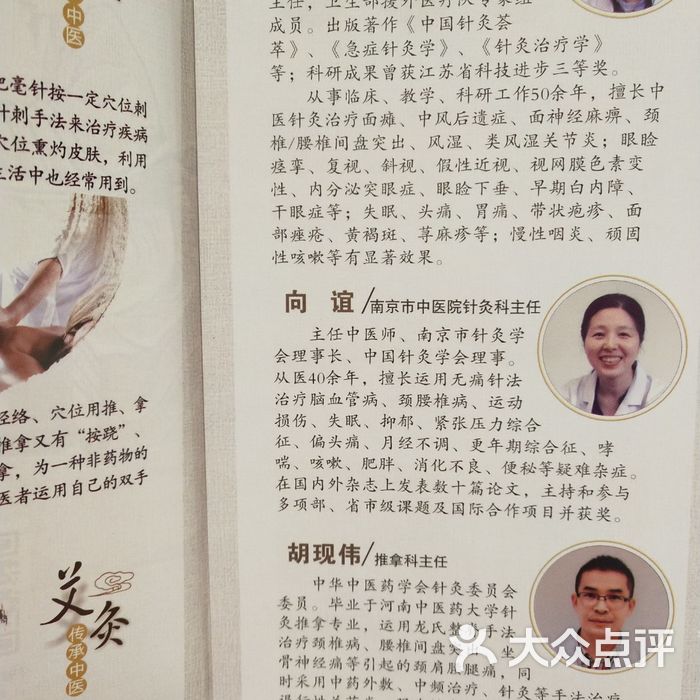 中医
把毫针按一定穴位刺
针刺手法来治疗疾病
穴位熏灼皮肤，利用
生活中也经常用到。
经络、穴位用推、拿
推拿又有“按跷”、
拿，为一种非药物的
医者运用自己的双手
艾灸
传承中医
主任，卫生部援外医疗队专家组
成员。出版著作《中国针灸荟
萃》、《急症针灸学》、《针灸治疗学》
等；科研成果曾获江苏省科技进步三等奖。
从事临床、教学、科研工作50余年，擅长中
医针灸治疗面瘫、中风后遗症、面神经麻痹、颈
椎/腰椎间盘突出、风湿、类风湿关节炎；眼睑
痉挛、复视、斜视、假性近视、视网膜色素变
性、内分泌突眼症、眼睑下垂、早期白内障、
干眼症等；失眠、头痛、胃痛、带状疱疹、面
部痤疮、黄褐斑、荨麻疹等；慢性咽炎、顽固
性咳嗽等有显著效果。
向 谊/南京市中医院针灸科主任
主任中医师、南京市针灸学
会理事长、中国针灸学会理事。
从医40余年，擅长运用无痛针法
治疗脑血管病、颈腰椎病、运动
损伤、失眠、抑郁、紧张压力综合
征、偏头痛、月经不调、更年期综合征、哮
喘、咳嗽、肥胖、消化不良、便秘等疑难杂症。
在国内外杂志上发表数十篇论文，主持和参与
多项部、省市级课题及国际合作项目并获奖。
胡现伟/推拿科主任
中华中医药学会针灸委员会
委员。毕业于河南中医药大学针
灸推拿专业，运用龙氏整 手法
治疗颈椎病、腰椎间盘突 坐
骨神经痛等引起的颈肩腰腿痛，同
时采用中药外敷、中频治疗、针灸等手法治疗
大众点评